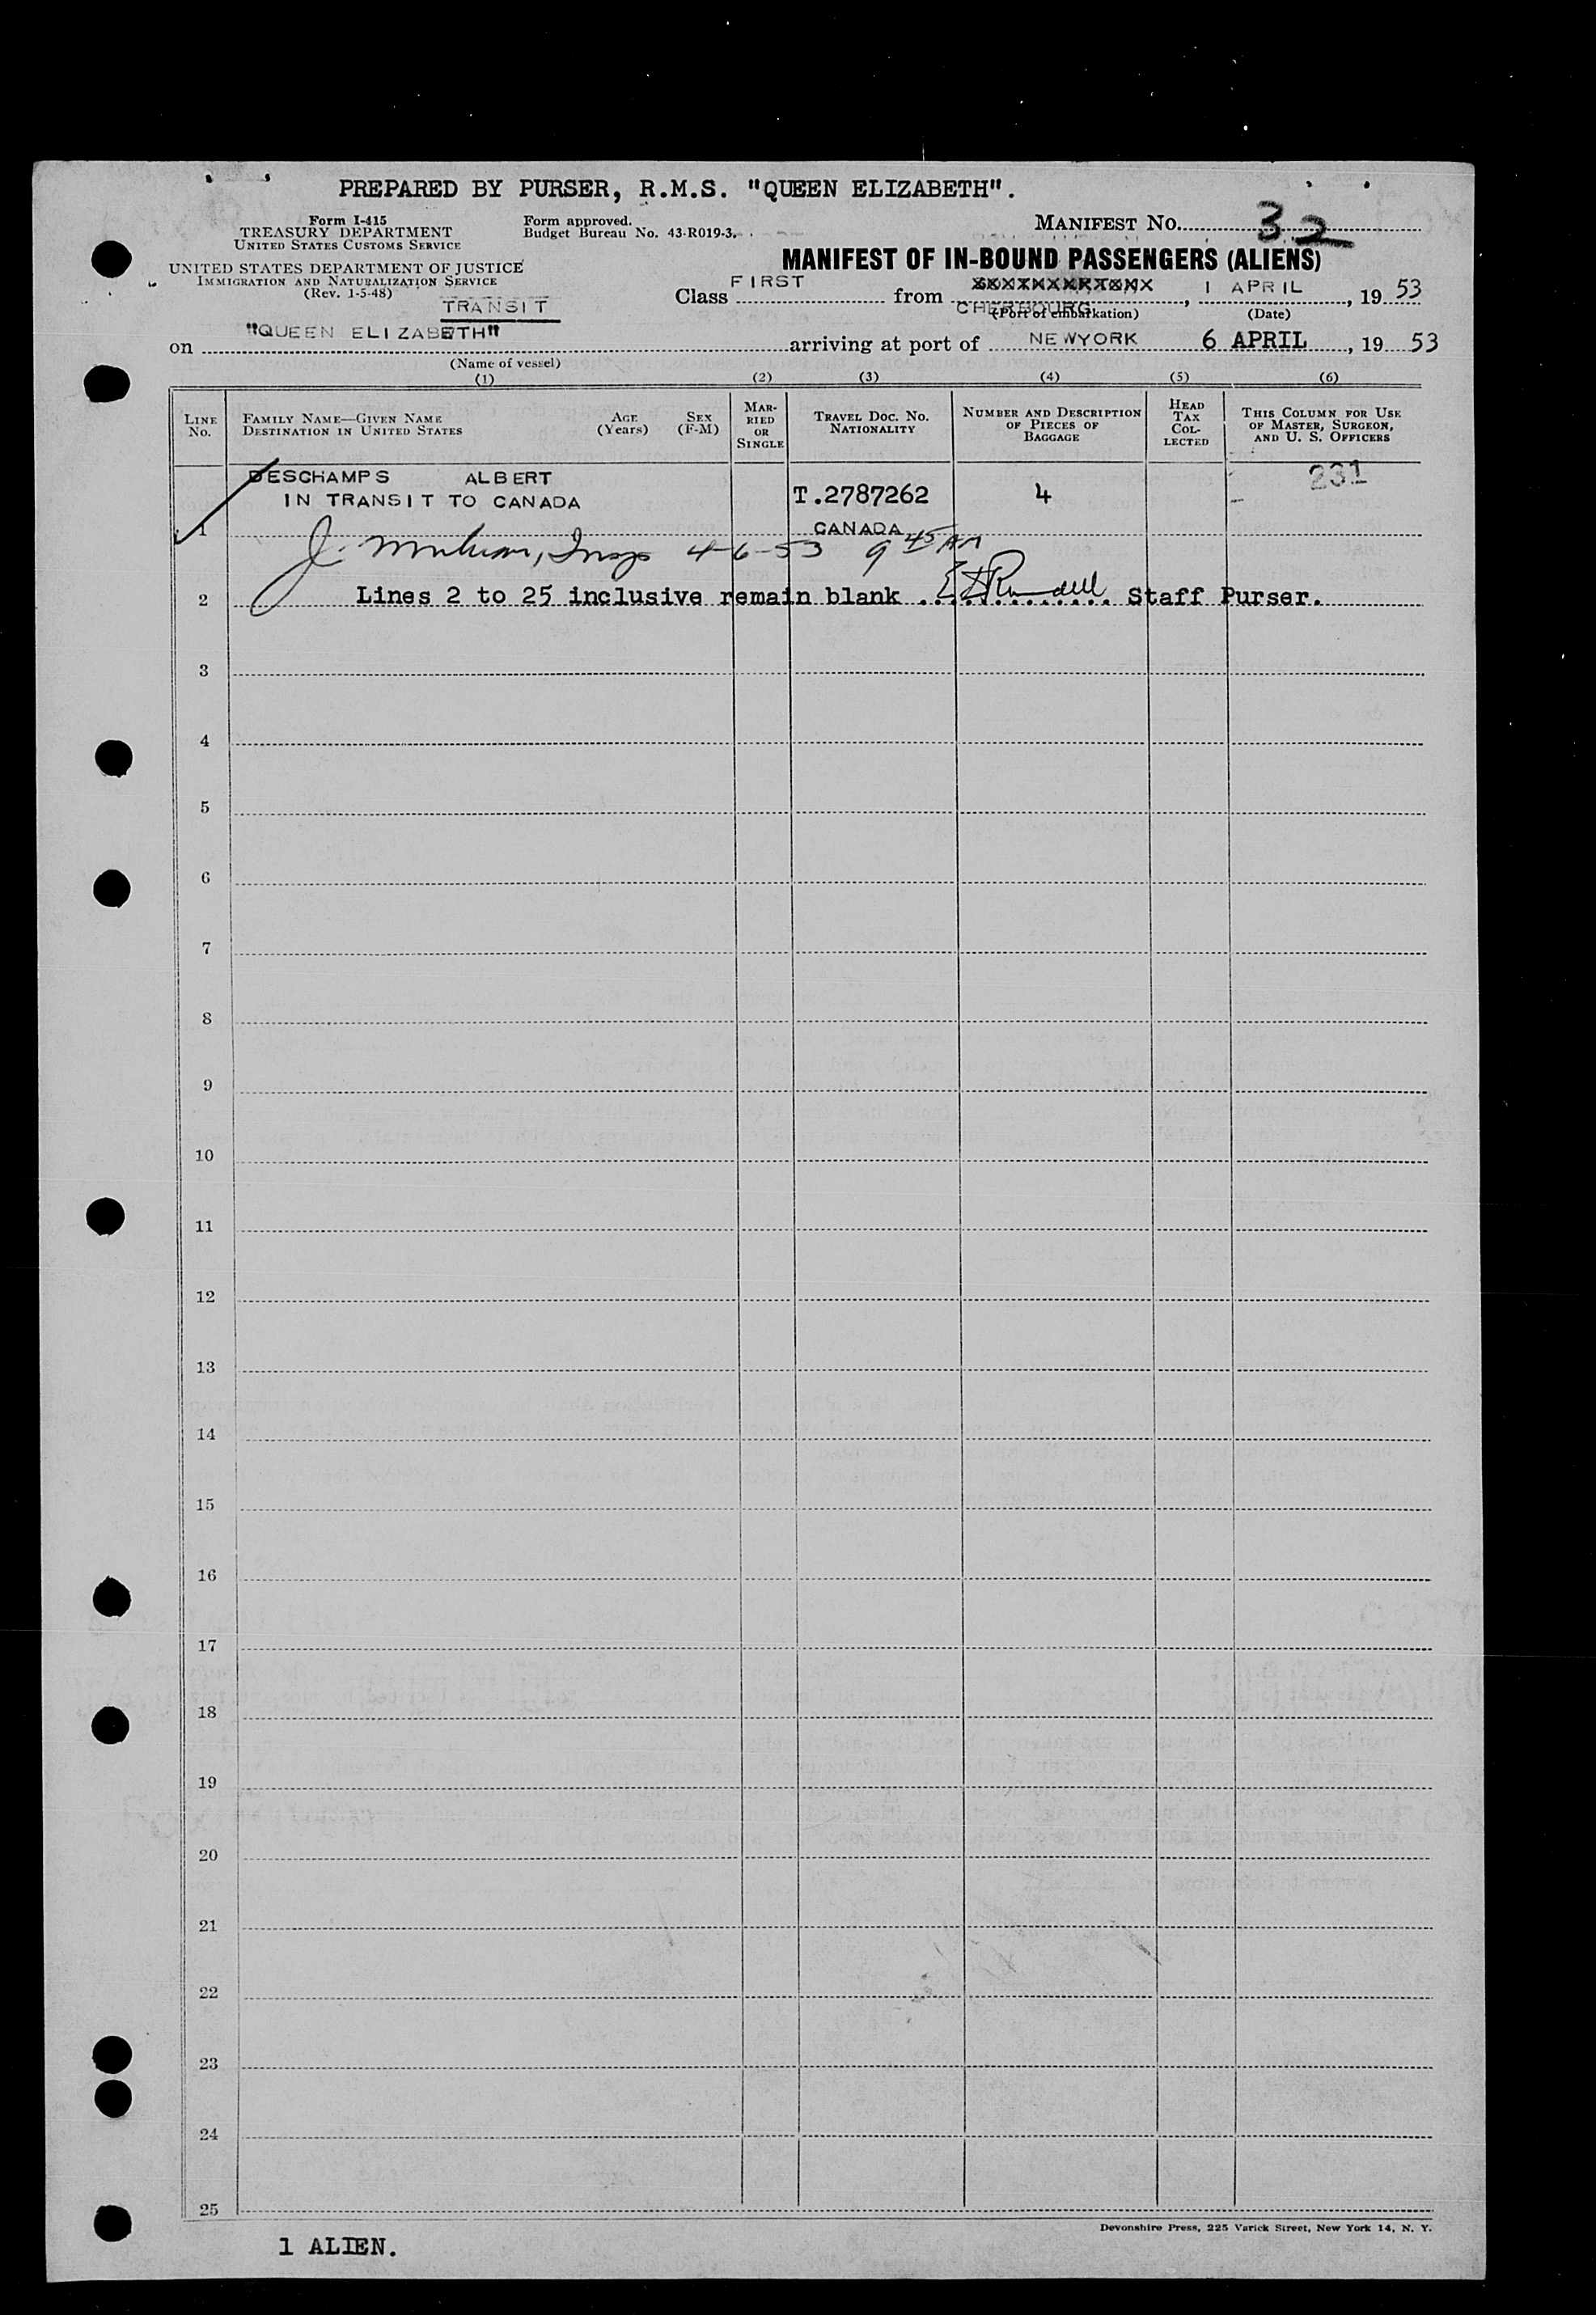 PREPARED BY PURSER, R.M.S. "QUEEN ELIZABETH".
Form I-415
TREASURY DEPARTMENT
UNITED STATES CUSTOMS SERVICE
Form approved.
Budget Bureau No. 43-R019-3.
MANIFEST NO. 32
UNITED STATES DEPARTMENT OF JUSTICE
IMMIGRATION AND NATURALIZATION SERVICE
(Rev. 1-5-48)
TRANSIT
MANIFEST OF IN-BOUND PASSENGERS (ALIENS)
Class FIRST from CHERBOURG, 1 APRIL, 1953
(Port of embarkation) (Date)
on "QUEEN ELIZABETH" arriving at port of NEWYORK 6 APRIL, 1953
(Name of vessel)
(1) (2) (3) (4) (5) (6)
LINE No. FAMILY NAME—GIVEN NAME DESTINATION IN UNITED STATES AGE (Years) SEX (F-M) MARRIED OR SINGLE TRAVEL DOC. NO. NATIONALITY NUMBER AND DESCRIPTION OF PIECES OF BAGGAGE HEAD TAX COLLECTED THIS COLUMN FOR USE OF MASTER, SURGEON, AND U. S. OFFICERS
DESCHAMPS ALBERT 231
IN TRANSIT TO CANADA T.2787262 4 –
1 CANADA
J. Insp 4-6-53 9 45 AM
2 Lines 2 to 25 inclusive remain blank Staff Purser.
3
4
5
6
7
8
9
10
11
12
13
14
15
16
17
18
19
20
21
22
23
24
25
Devonshire Press, 225 Varick Street, New York 14, N. Y.
1 ALIEN.